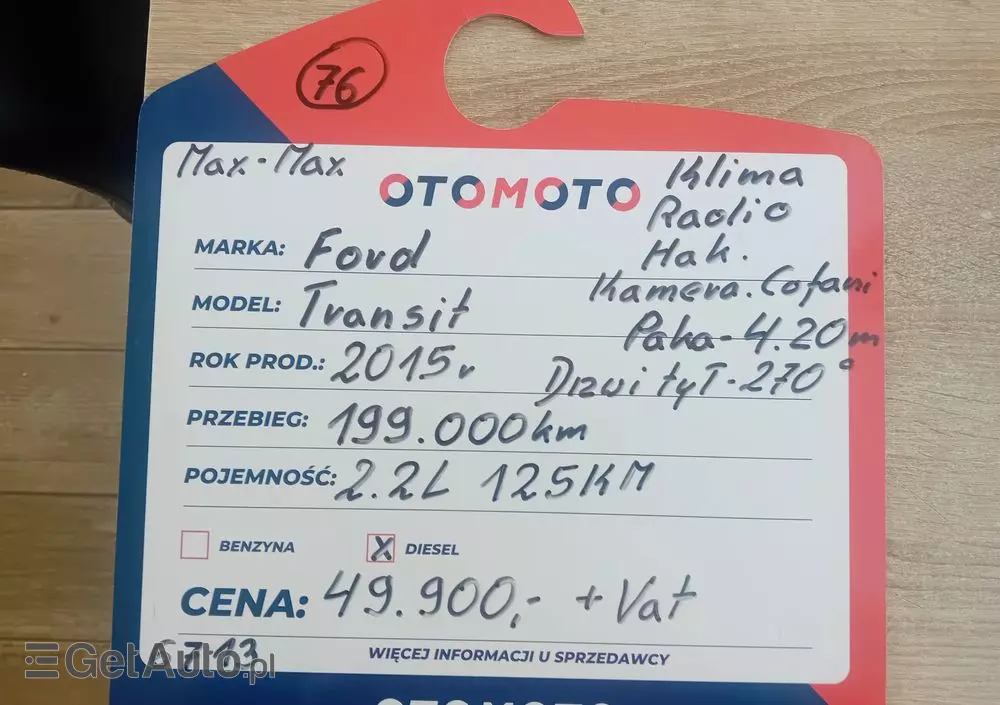 76
Max-Max
OTOMOTO
Klima
Radio
Hak.
Kamera. Cofani
Paka-4.20m
Drzwi tył-270°
MARKA: Ford
MODEL: Transit
ROK PROD.: 2015r
PRZEBIEG: 199.000km
POJEMNOŚĆ: 2.2L 125KM
BENZYNA
X DIESEL
CENA: 49.900,- + Vat
GetAuto.pl
WIĘCEJ INFORMACJI U SPRZEDAWCY
OTOMOTO